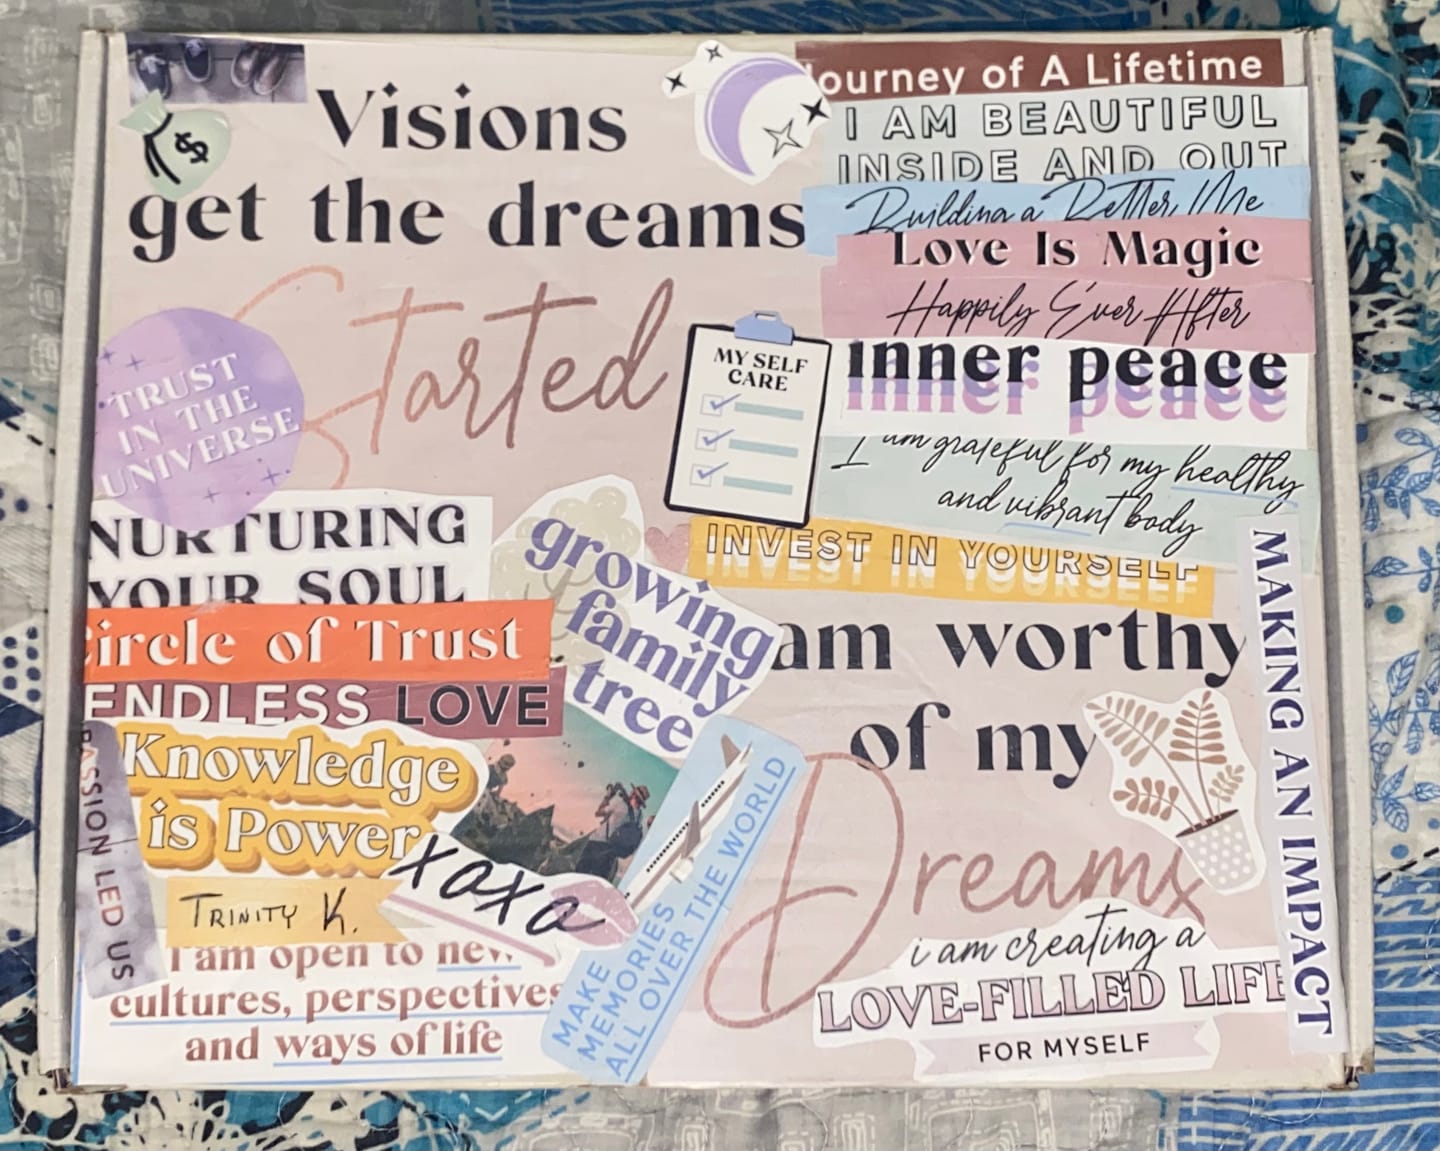 Visions
get the dreams
Started
$
Journey of A Lifetime
I AM BEAUTIFUL
INSIDE AND OUT
Building a Better Me
Love Is Magic
Happily Ever After
inner peace
inner peace
I am grateful for my healthy
and vibrant body
MY SELF
CARE
TRUST
IN THE
UNIVERSE
INVEST IN YOURSELF
INVEST IN YOURSELF
NURTURING
YOUR SOUL
Circle of Trust
ENDLESS LOVE
growing
family
tree
am worthy
of my
Dreams
MAKING AN IMPACT
Knowledge
is Power
PASSION LED US
TRINITY K.
xoxo
I am open to new
cultures, perspectives
and ways of life
MAKE
MEMORIES
ALL OVER THE WORLD
i am creating a
LOVE-FILLED LIFE
FOR MYSELF